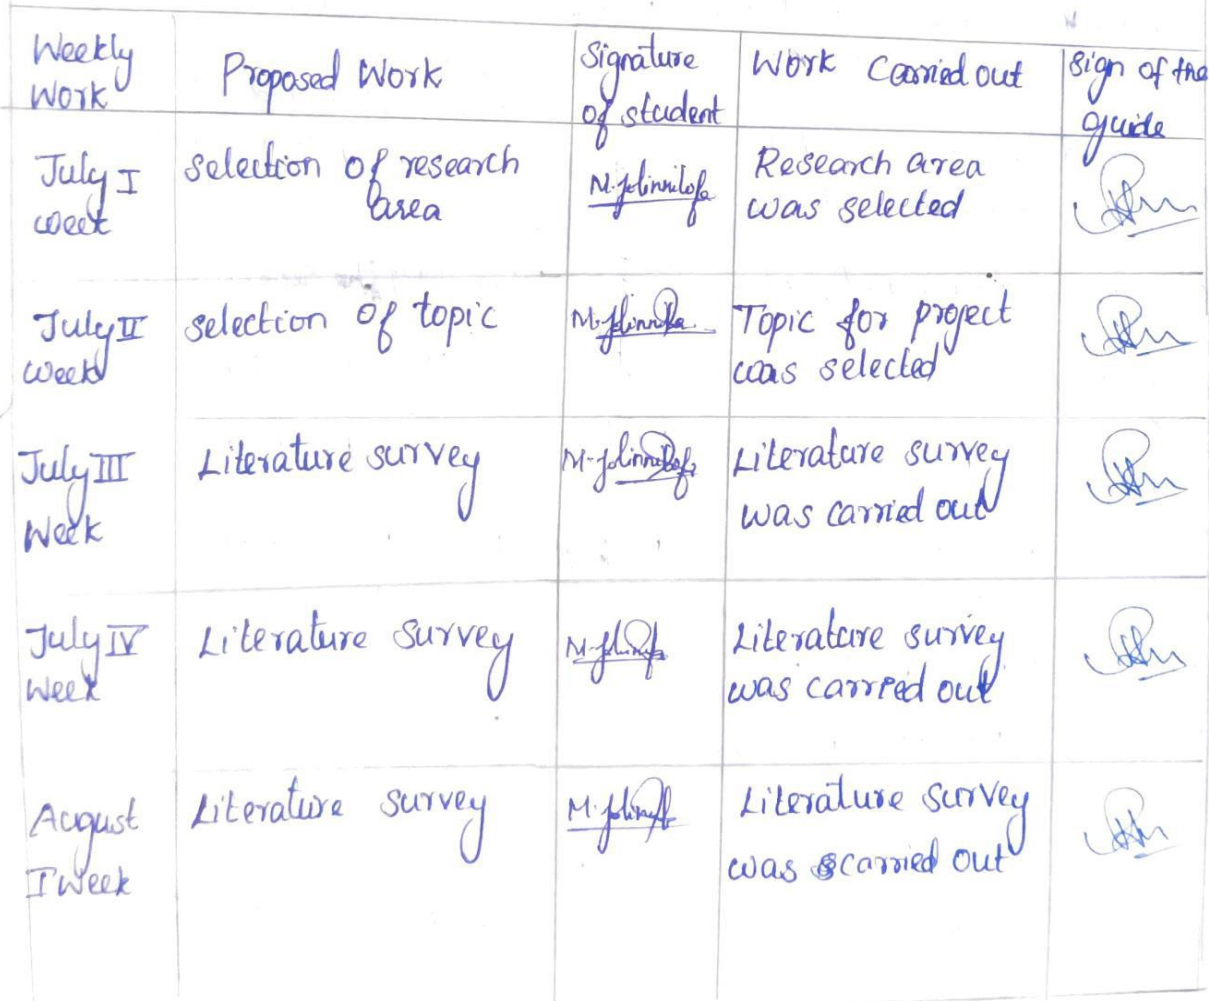 Weekly Work
Proposed Work
Signature of student
Work Carried out
Sign of the guide
July I week
selection of research area
Research area was selected
July II week
selection of topic
Topic for project was selected
July III Week
Literature survey
Literature survey was carried out
July IV Week
Literature survey
Literature survey was carried out
August I Week
Literature survey
Literature survey was carried out